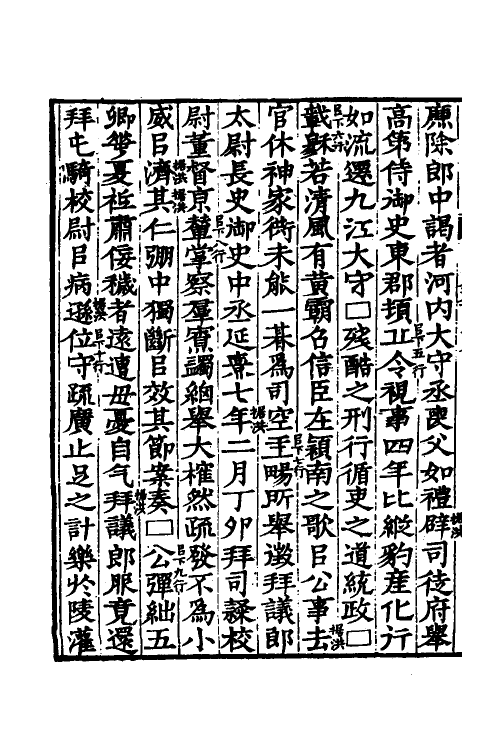 廉除郎中謁者河内大守丞喪父如禮辟司徒府舉
高第侍御史東郡頓丘㠯下五行令視事四年比縱豹產化行
如流遷九江大守□殘酷之刑行循吏之道統政□
㠯下六行載穌若清風有黃霸召信臣在潁南之歌㠯公事去
官休神家衖未能一朞為司空王暢㠯下七行所舉徵拜議郎
太尉長史御史中丞延熹七年二月丁卯拜司隸校
尉董督京輦㠯下八行掌察羣寮蠲細舉大榷然疏發不為小
威㠯濟其仁弸中獨斷㠯效其節案奏□公㠯下九行彈絀五
卿華夏祗肅佞穢者遠遭毋憂自乞拜議郎服竟還
拜屯騎校尉㠯病遜位㠯下十行守疏廣止足之計樂於陵灌